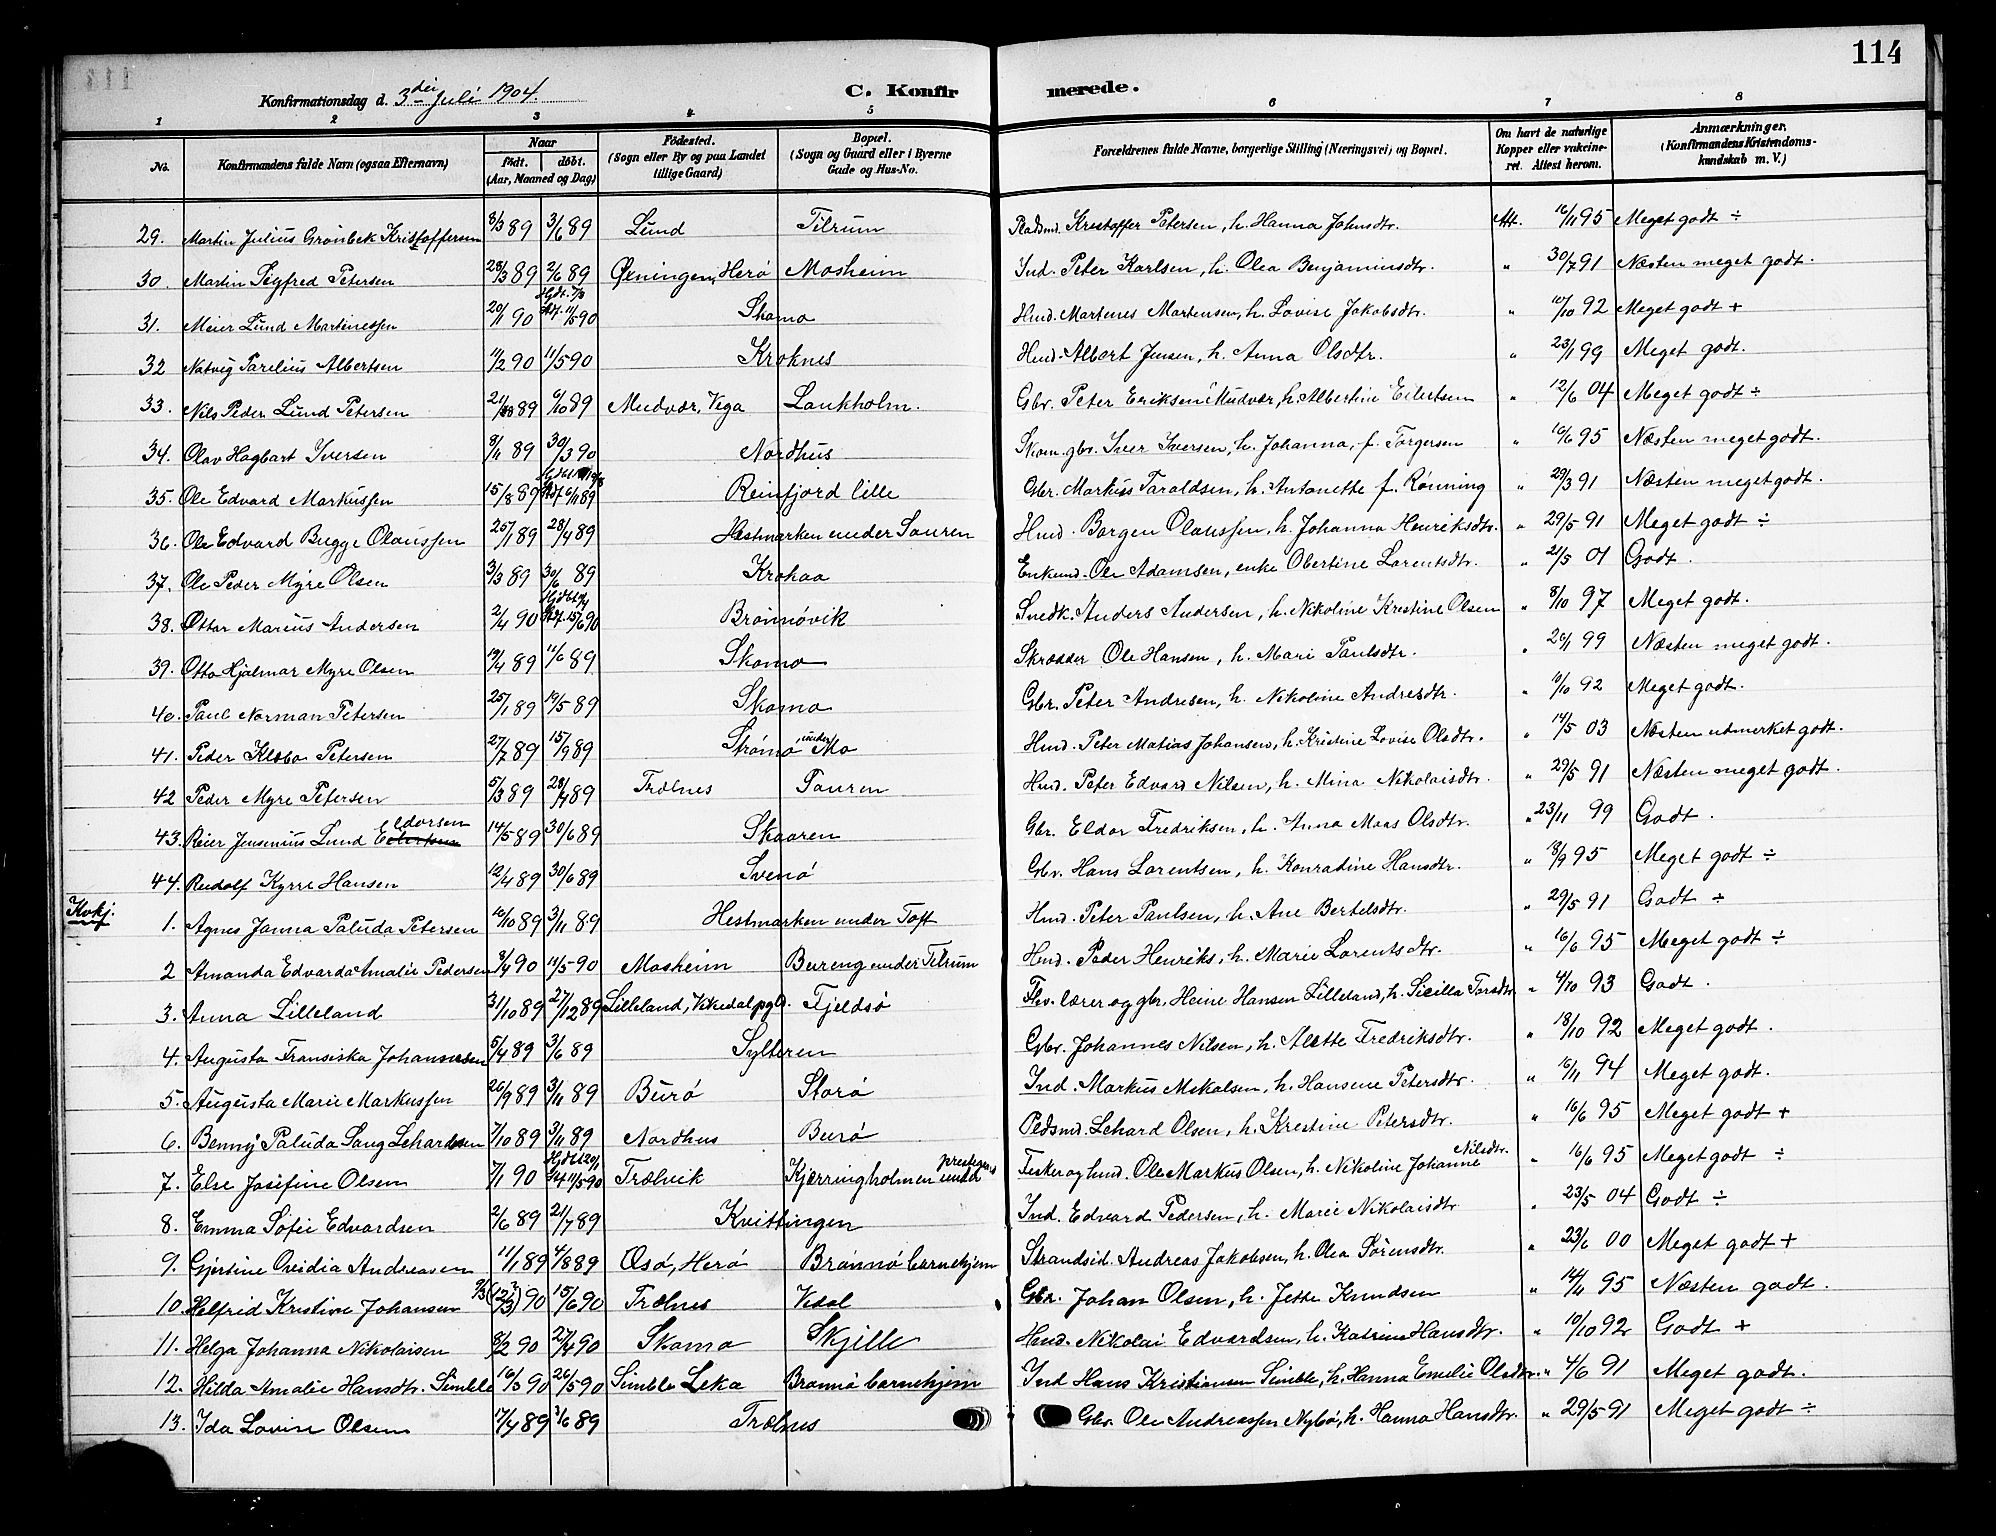 114
Konfirmationsdag d. 3die Juli 1904. C. Konfirmerede.
1 2 3 4 5 6 7 8
No. Konfirmandens fulde Navn (ogsaa Efternavn) Naar født. døbt. (Aar, Maaned og Dag) Fødested. (Sogn eller By og paa Landet tillige Gaard) Bopæl. (Sogn og Gaard eller i Byerne Gade og Hus-No. Forældrenes fulde Navne, borgerlige Stilling (Næringsvei) og Bopæl. Om havt de naturlige Kopper eller vakcineret. Attest herom. Anmærkninger. (Konfirmandens Kristendomskundskab m. V.)
29. Martin Julius Grønbek Kristoffersen 8/3 89 3/6 89 Lund Tilrum Pladsmd. Kristoffer Petersen, h. Hanna Johnsdtr. Att. 16/11 95 Meget godt ÷
30. Martin Sigfred Petersen 28/3 89 2/6 89 Øxningen, Herø Mosheim Ind. Peter Karlsen, h. Olea Benjaminsdtr. " 30/7 91 Næsten meget godt.
31. Meier Lund Martinessen 20/1 90 Hjdt. 7/3 Stf. 11/5 90 Skomo Hmd. Martenes Martensen, h. Lovise Jakobsdtr. " 10/10 92 Meget godt +
32 Natvig Parelius Albertsen 11/2 90 11/5 90 Kroknes Hmd. Albert Jensen, h. Anna Olsdtr. " 23/1 99 Meget godt.
33. Nils Peder Lund Petersen 89 6/10 89 Mudvær, Vega Laukholm. Gbr. Peter Eriksen Mudvær, h. Albertine Eilertsen " 12/6 04 Meget godt ÷
34. Olav Hagbart Iversen 8/11 89 30/3 90 Nordhus Skom. gbr. Iver Iversen, h. Johanna, f. Torgersen " 16/6 95 Næsten meget godt.
35. Ole Edvard Markussen 15/8 89 Stf. 6/11 89 Reinfjord lille Gbr. Markus Taraldsen, h. Antonette f. Rønning " 29/3 91 Næsten meget godt.
36. Ole Edvard Bugge Olaussen 25/1 89 28/4 89 Hestmarken under Sauren Hmd. Borgen Olaussen, h. Johanna Henriksdtr. " 29/5 91 Meget godt ÷
37. Ole Peder Myre Olsen 3/3 89 30/6 89 Krokaa Enkemd. Ole Adamsen, enke Obertine Larentsdtr. " 21/5 01 Godt.
38. Ottar Marius Andersen 2/4 90 Stf. 15/6 90 Brønnøvik Snedk. Anders Andersen, h. Nikoline Krestine Olsen " 8/10 97 Meget godt.
39. Otto Hjalmar Myre Olsen 19/4 89 11/6 89 Skomo Skrædder Ole Hansen, h. Mari Paulsdtr. " 20/1 99 Næsten meget godt.
40. Paul Norman Petersen 25/1 89 19/5 89 Skomo Gbr. Peter Andresen, h. Nikoline Andresdtr. " 10/10 92 Meget godt.
41. Peder Klæbo Petersen 27/7 89 15/9 89 Strømø under Mo Hmd. Peter Matias Johansen, h. Kristine Lovise Olsdtr. " 14/5 03 Næsten udmerket godt.
42 Peder Myre Petersen 5/3 89 28/4 89 Trælnes Sauren Hmd. Peter Edvard Nilsen, h. Mina Nikolaisdtr. " 29/5 91 Næsten meget godt.
43. Reier Jensenius Lund Eldorsen 14/5 89 30/6 89 Skaaren Gbr. Eldor Fredriksen, h. Anna Maas Olsdtr. " 23/11 99 Godt.
44. Rudolf Kyrre Hansen 12/4 89 30/6 89 Svenø Gbr. Hans Lorentsen, h. Konradine Hansdtr. " 18/9 95 Meget godt ÷
Kvkj.
1. Agnes Janna Paluda Petersen 16/10 89 3/11 89 Hestmarken under Toft Hmd. Peter Paulsen, h. Ane Bertelsdtr. " 29/5 91 Godt ÷
2 Amanda Edvarda Amalie Pedersen 3/4 90 11/5 90 Mosheim Bureng under Tilrum Hmd. Peder Henriks, h. Marie Lorentsdtr. " 16/6 95 Meget godt ÷
3. Anna Lilleland 3/10 89 27/12 89 Lilleland, Vikedal pgld. Fjeldsø Fhv. lærer og gbr. Heine Hansen Lilleland, h. Sicilla Torsdtr. " 4/10 93 Godt.
4. Augusta Fransiska Johannesen 5/4 89 3/6 89 Sylteren Gbr. Johannes Nilsen, h. Alette Fredriksdtr. " 18/10 92 Meget godt.
5. Augusta Marie Markussen 26/9 89 3/11 89 Burø Storø Ind. Markus Mikalsen, h. Hansine Petersdtr. " 16/11 94 Meget godt.
6. Benny Paluda Saug Lehardsen 7/10 89 3/11 89 Nordhus Burø Pldsmd. Lehard Olsen, h. Krestine Petersdtr. " 16/6 95 Meget godt +
7. Else Josefine Olsen 7/1 90 Hjdbt 20/1 Stf 11/5 90 Trælvik Kjærringholmen under prestegrd. Fisker og hmd. Ole Markus Olsen, h. Nikoline Johanne Nilsdtr. " 16/6 95 Meget godt ÷
8. Emma Sofie Edvardsen 2/6 89 21/7 89 Kvittingen Ind. Edvard Pedersen, h. Marie Nikolaisdtr " 23/5 04 Godt ÷
9. Gjertine Ovidia Andreasen 11/1 89 4/8 89 Øsø, Herø Brønnø barnehjem Strandsid. Andreas Jakobsen, h. Olea Sørensdtr. " 23/6 00 Meget godt +
10. Helfrid Kristine Johansen 7/3 (12/3 ?) 90 15/6 90 Trælnes Vedal Gbr. Johan Olsen, h. Jette Knudsen " 14/11 95 Næsten godt.
11. Helga Johanna Nikolaisen 8/2 90 27/4 90 Skomo Skjille Hmd. Nikolai Edvardsen, h. Katrine Hansdtr. " 10/10 92 Godt +
12. Hilda Amalie Hansdtr. Simble 16/3 90 26/5 90 Simble Leka Brønnø barnehjem Ind Hans Kristiansen Simble, h. Hanna Emelie Olsdtr. " 4/6 91 Meget godt.
13. Ida Lovise Olsen 17/4 89 3/6 89 Trælnes Gbr. Ole Andreassen Nybø, h. Hanna Hansdtr. " 29/5 91 Meget godt ÷